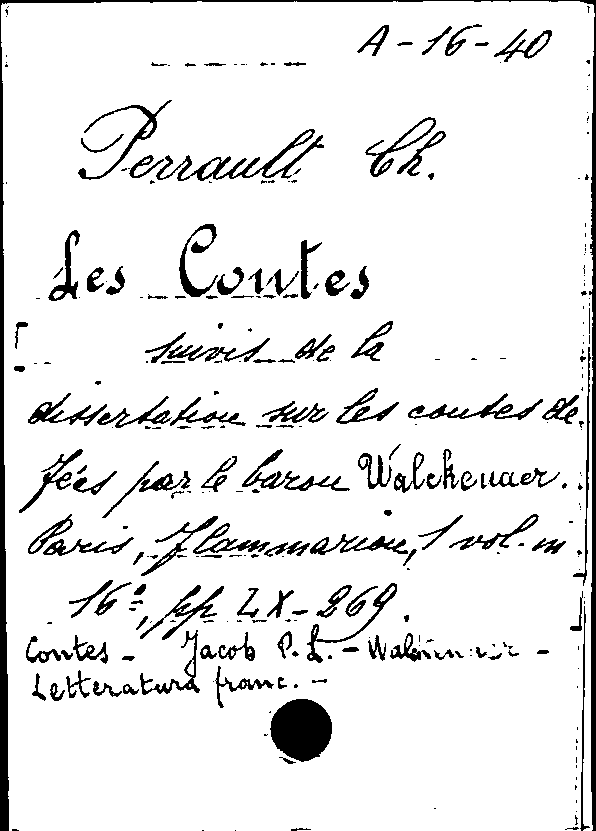 A-16-40
Perrault Ch.
Les Contes
suivis de la
dissertation sur les contes de
fées par le baron Walckenaer.
Paris, Flammarion, 1 vol. in
16°, pp LX-269.
Contes - Jacob P. L. -
Letteratura franc. -